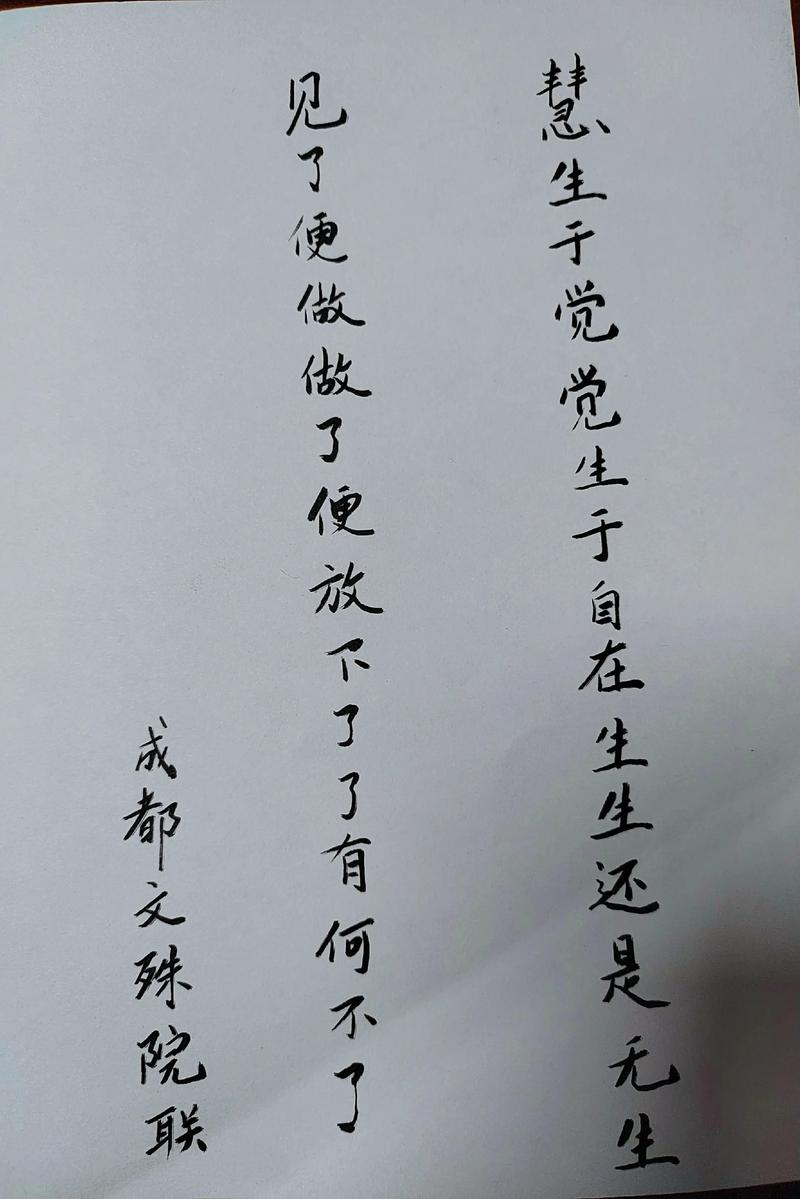 慧生于觉觉生于自在生生还是无生
见了便做做了便放下了了有何不了
成都文殊院联